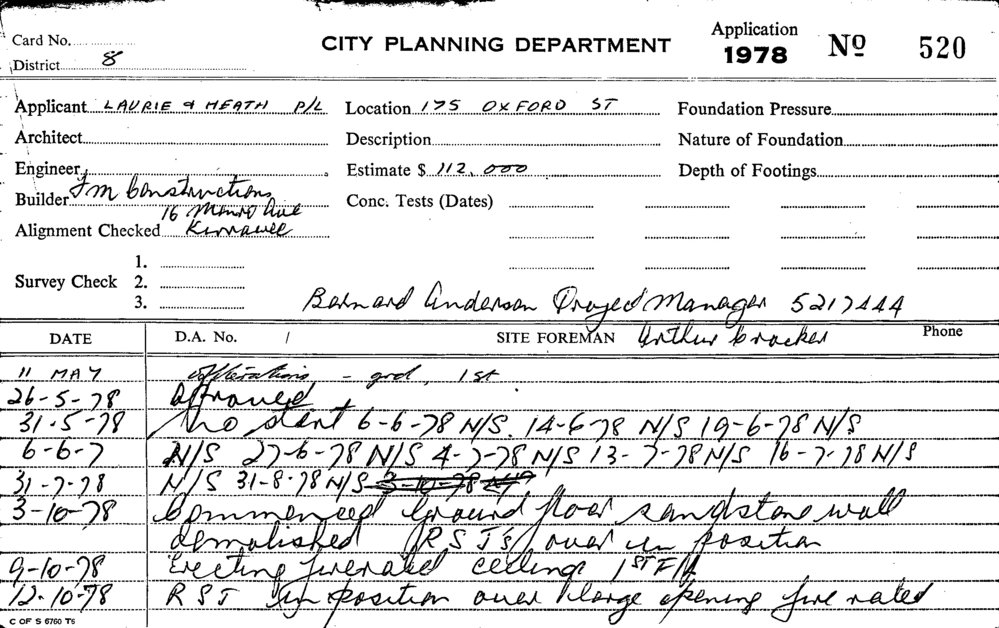 Card No.
CITY PLANNING DEPARTMENT
Application 1978
Nº 520
District 8
Applicant LAURIE & HEATH P/L Location 175 OXFORD ST Foundation Pressure
Architect Description Nature of Foundation
Engineer Estimate $ 112,000 Depth of Footings
Builder J M Constructions Conc. Tests (Dates)
16 Monro Ave
Alignment Checked Kirrawee
1.
Survey Check 2.
3. Barnard Anderson Project Manager 5217444
DATE D.A. No. / SITE FOREMAN Arthur Crocker Phone
11 MAY Alterations - grd, 1st
26-5-78 Approved
31-5-78 No start 6-6-78 N/S. 14-6-78 N/S 19-6-78 N/S
6-6-7 N/S 27-6-78 N/S 4-7-78 N/S 13-7-78 N/S 16-7-78 N/S
31-7-78 N/S 31-8-78 N/S 3-10-78
3-10-78 Commenced Ground floor sandstone wall
demolished (RSJ's) over in position
9-10-78 Erecting firerated ceiling 1ST F/L
12-10-78 RSJ in position over large opening fire rated
C OF S 6760 T6